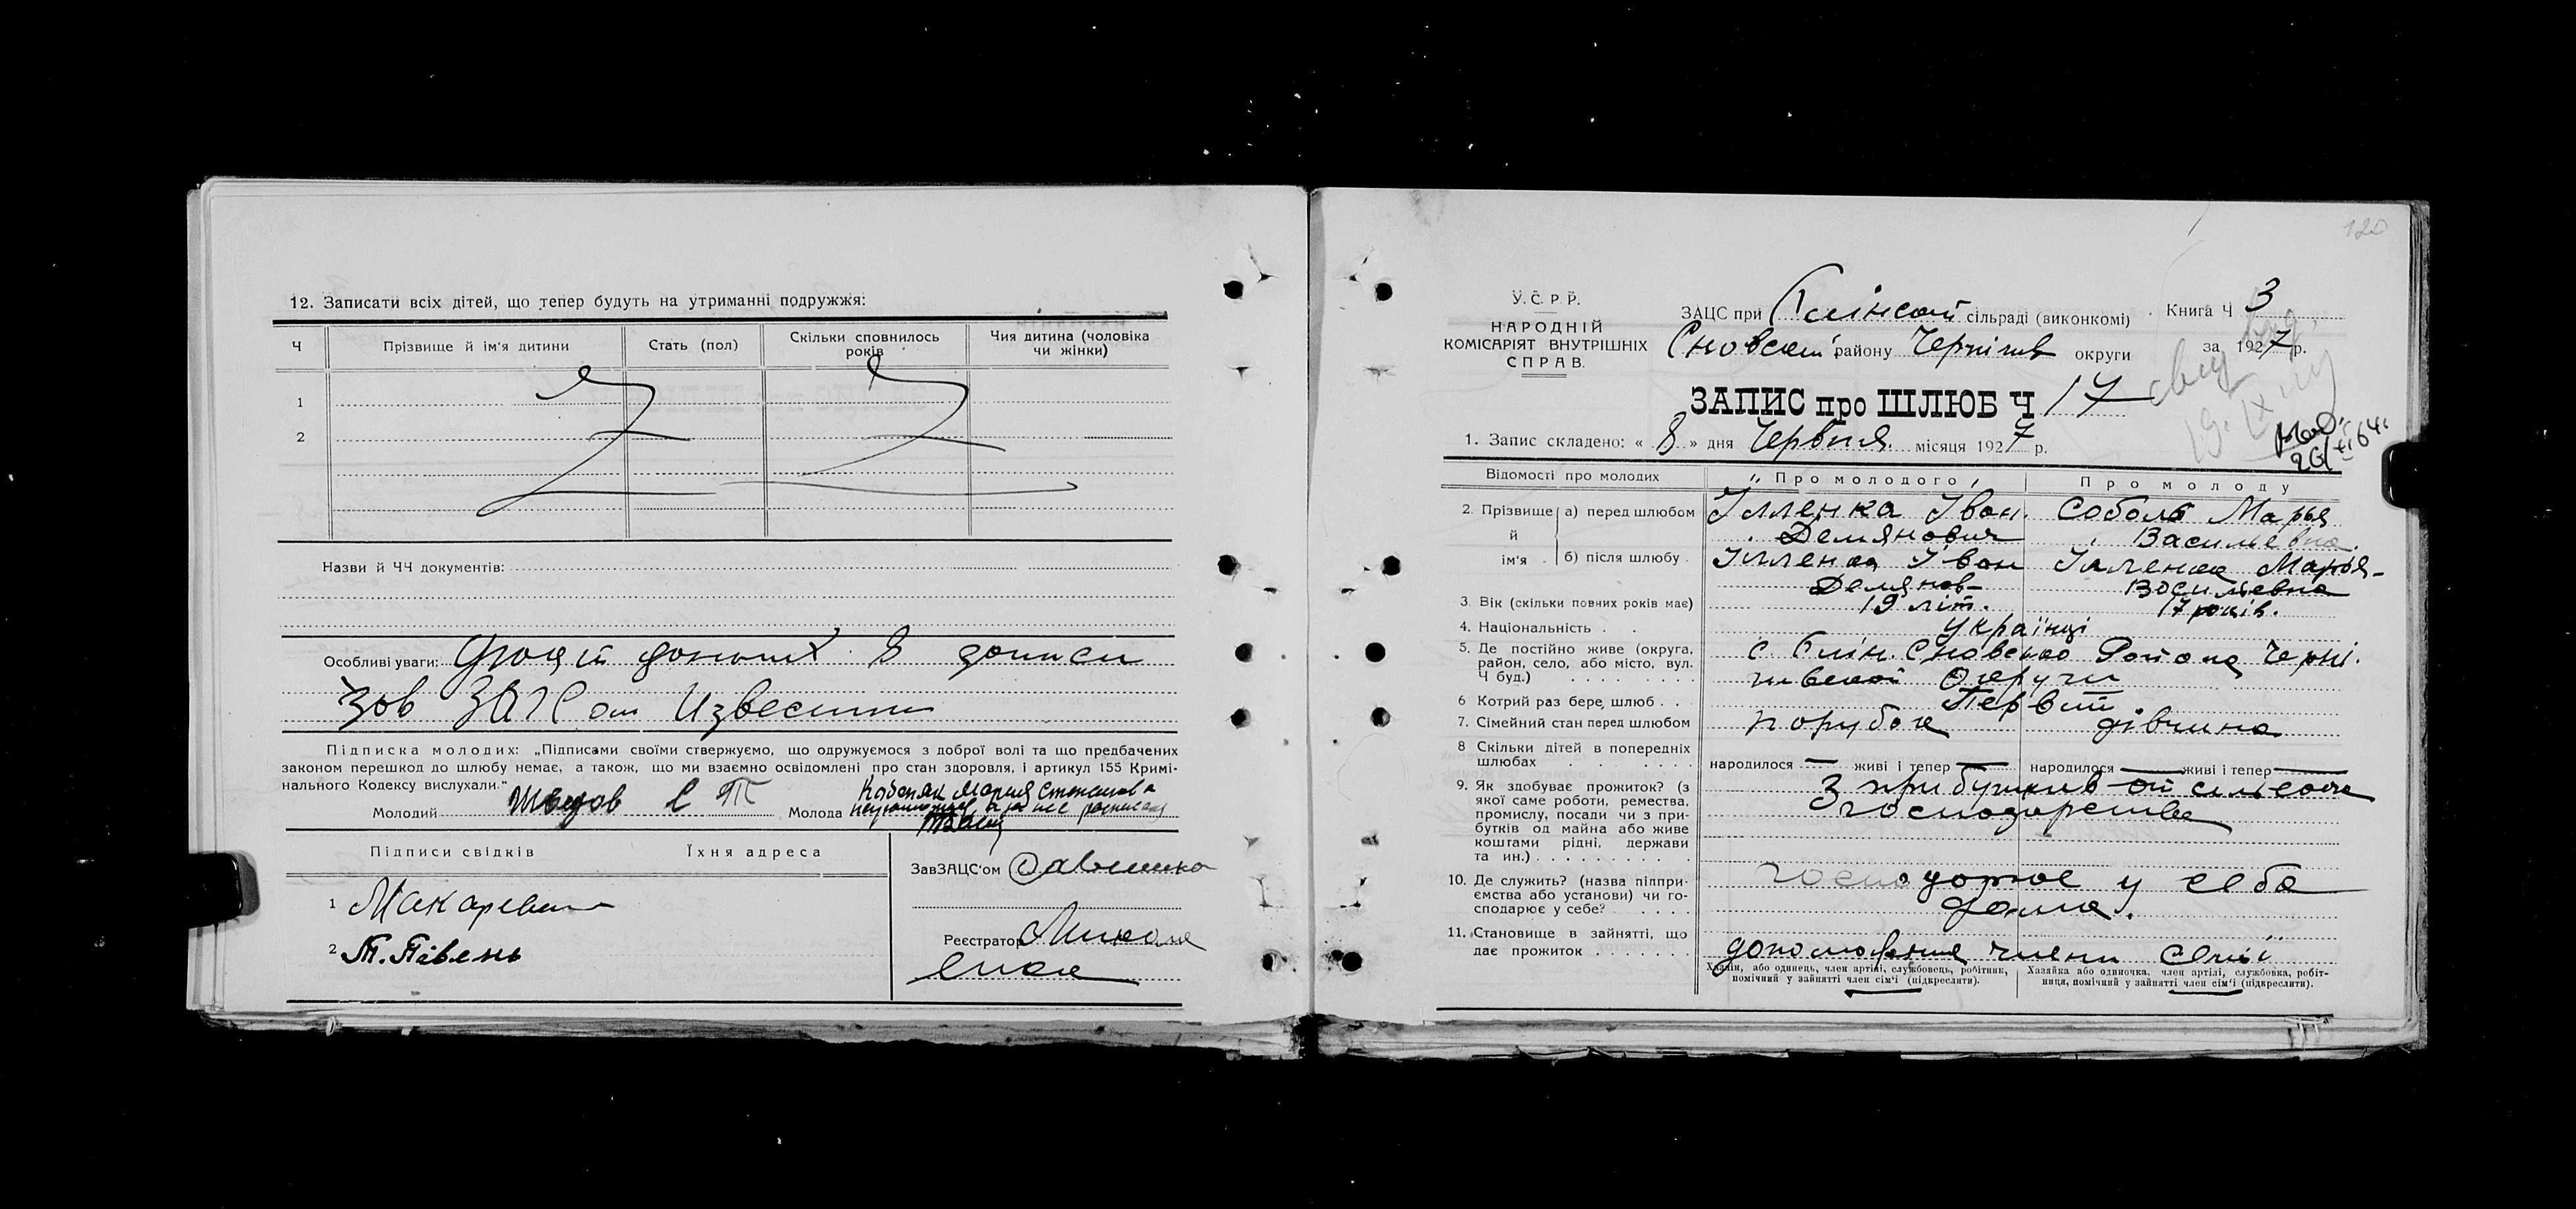 12. Записати всіх дітей, що тепер будуть на утриманні подружжя:
Ч
Прізвище й ім'я дитини
Стать (пол)
Скільки сповнилось років
Чия дитина (чоловіка чи жінки)
1
2
Назви й ЧЧ документів:
Особливі уваги: в записи
ЗАГСом Известны
Підписка молодих: „Підписами своїми стверджуємо, що одружуємося з доброї волі та що предбачених
законом перешкод до шлюбу немає, а також, що ми взаємно освідомлені про стан здоровля, і артикул 155 Кримі-
нального Кодексу вислухали."
Молодий Шведов С Т Молода Мария Степанова
Підписи свідків
Їхня адреса
1 Макаревич
2 Т. Півень
ЗавЗАЦС'ом Савченко
Реєстратор
120
У.С.Р.Р.
НАРОДНІЙ
КОМІСАРІЯТ ВНУТРІШНІХ
СПРАВ.
ЗАЦС при сільраді (виконкомі)
Сновский району Чернігів округи
Книга Ч 3
за 1927 р.
ЗАПИС про ШЛЮБ Ч 17
1. Запис складено: « 8 » дня Червня місяця 1927 р.
Відомості про молодих
Про молодого
Про молоду
2. Прізвище й ім'я
а) перед шлюбом
Ілленка Іван
Демянович
Соболь Марья
Васильевна
б) після шлюбу
Ілленка Іван
Демянов-
Ілленка Марья-
Васильевна
3. Вік (скільки повних років має)
19 літ.
17 років.
4. Національність . .
українці
5. Де постійно живе (округа,
район, село, або місто, вул.
Ч буд.)
с. Сновского Района Черні.
гивской Округи
6 Котрий раз бере шлюб . .
Первий
7. Сімейний стан перед шлюбом
порубок
дівчина
8 Скільки дітей в попередніх
шлюбах
народилося — живі і тепер —
народилося — живі і тепер —
9. Як здобуває прожиток? (з
якої саме роботи, ремества,
промислу, посади чи з при-
бутків од майна або живе
коштами рідні, держави
та ин.)
З прибутків от сільского
господарства
10. Де служить? (назва підпри-
ємства або установи) чи го-
сподарює у себе?
господарює у себе
дома.
11. Становище в зайнятті, що
дає прожиток
члени сем'ї
Хазяїн, або одинець, член артілі, службовець, робітник,
помічний у зайнятті член сім'ї (підкреслити).
Хазяйка або одиночка, член артілі, службовка, робіт-
ниця, помічний у зайнятті член сім'ї (підкреслити).